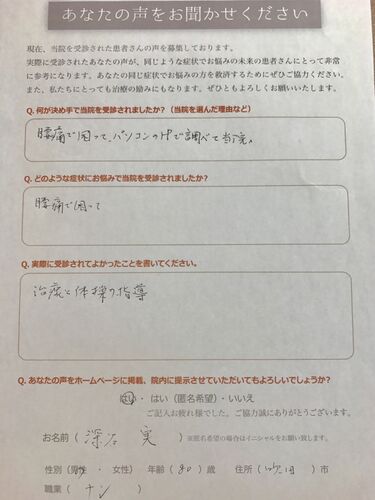 あなたの声をお聞かせください
現在、当院を受診された患者さんの声を募集しております。
実際に受診されたあなたの声が、同じような症状でお悩みの未来の患者さんにとって非常
に参考になります。あなたの同じ症状でお悩みの方を救済するためにぜひご協力ください。
また、私たちにとっても治療の励みにもなります。ぜひともよろしくお願いいたします。
Q. 何が決め手で当院を受診されましたか？（当院を選んだ理由など）
腰痛で困って、パソコンのHPで調べて当院。
Q. どのような症状にお悩みで当院を受診されましたか？
腰痛で困って
Q. 実際に受診されてよかったことを書いてください。
治療と体操の指導
Q. あなたの声をホームページに掲載、院内に提示させていただいてもよろしいでしょうか？
はい・はい（匿名希望）・いいえ
ご記入お疲れ様でした。ご協力誠にありがとうございます。
お名前（ 実 ）※匿名希望の場合はイニシャルをお願い致します。
性別（男性・女性） 年齢（80）歳 住所（吹田）市
職業（ナシ）